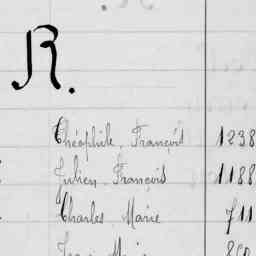 R.
Théophile, François 1238
Julien François 1188
Charles Marie 711